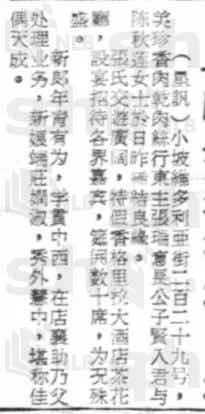 （晨訊）小坡維多利亜街二百二十九号，
美珍香肉乾肉絲行東主張瑞意長公子賢人君与
陈秋蓮女士於日昨 结良緣。
張氏交遊廣闊，特假香格里拉大酒店茶花
廳，設宴招待各界嘉宾，筵開数十席，为況殊
盛。
新郎年靑有为，学貫中西，在店襄助乃父
处理业务，新嫒端莊嫻淑，秀外慧中，堪称佳
偶天成。